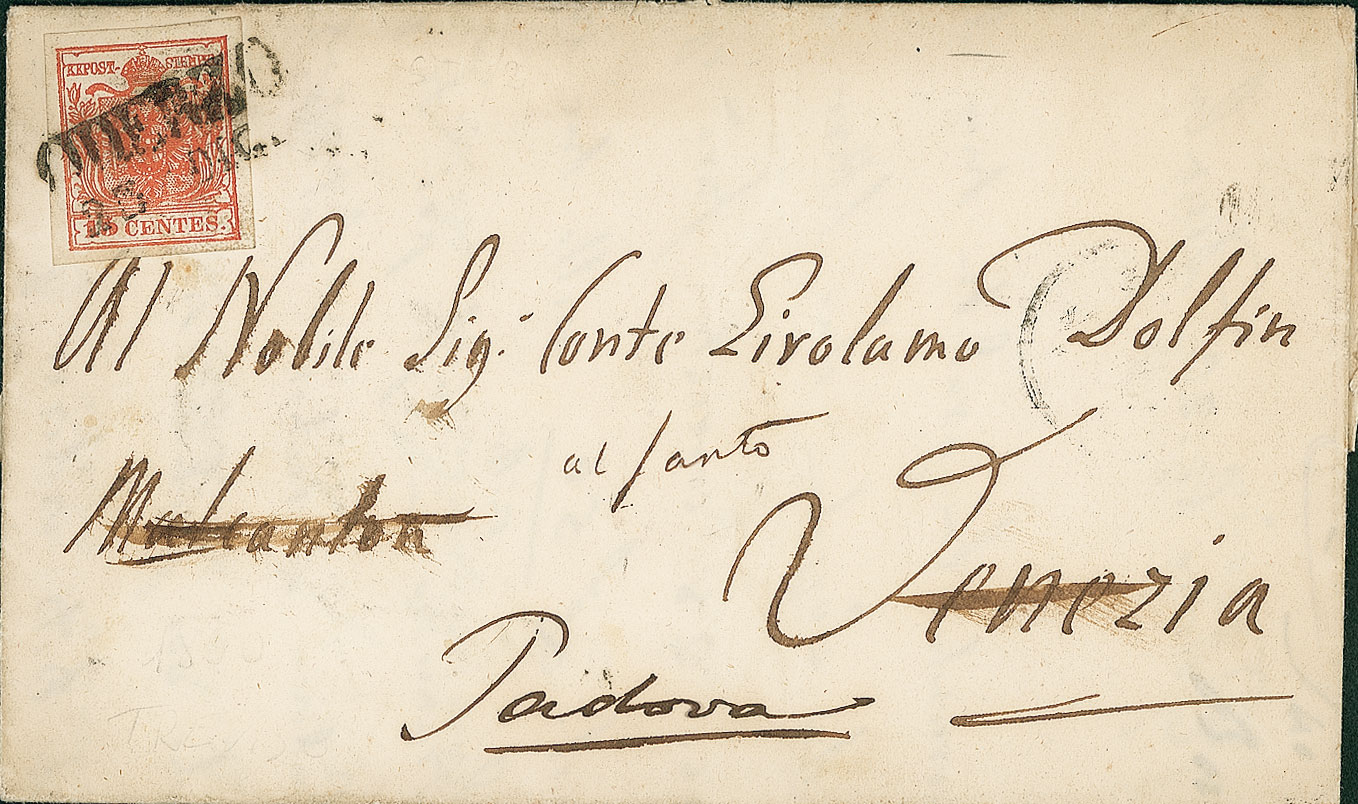 KKPOST-STEMPEL
ODERZO
DIC.
15 CENTES.
Al Nobile Sig.r Conte Girolamo Dolfin
al Santo
Malcanton
Venezia
Padova